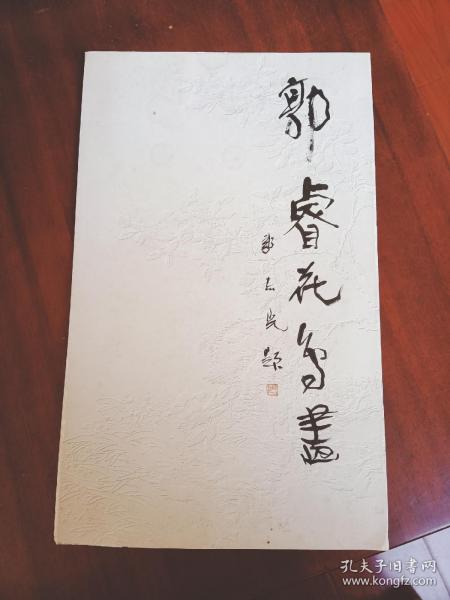 郭睿花鸟画
郭志光题
孔夫子旧书网
www.kongfz.com